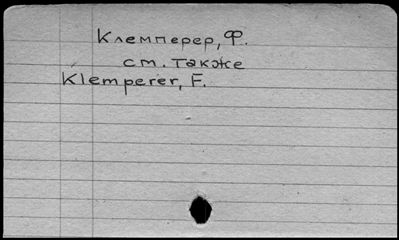 Клемперер, Ф.
см. также
Klemperer, F.